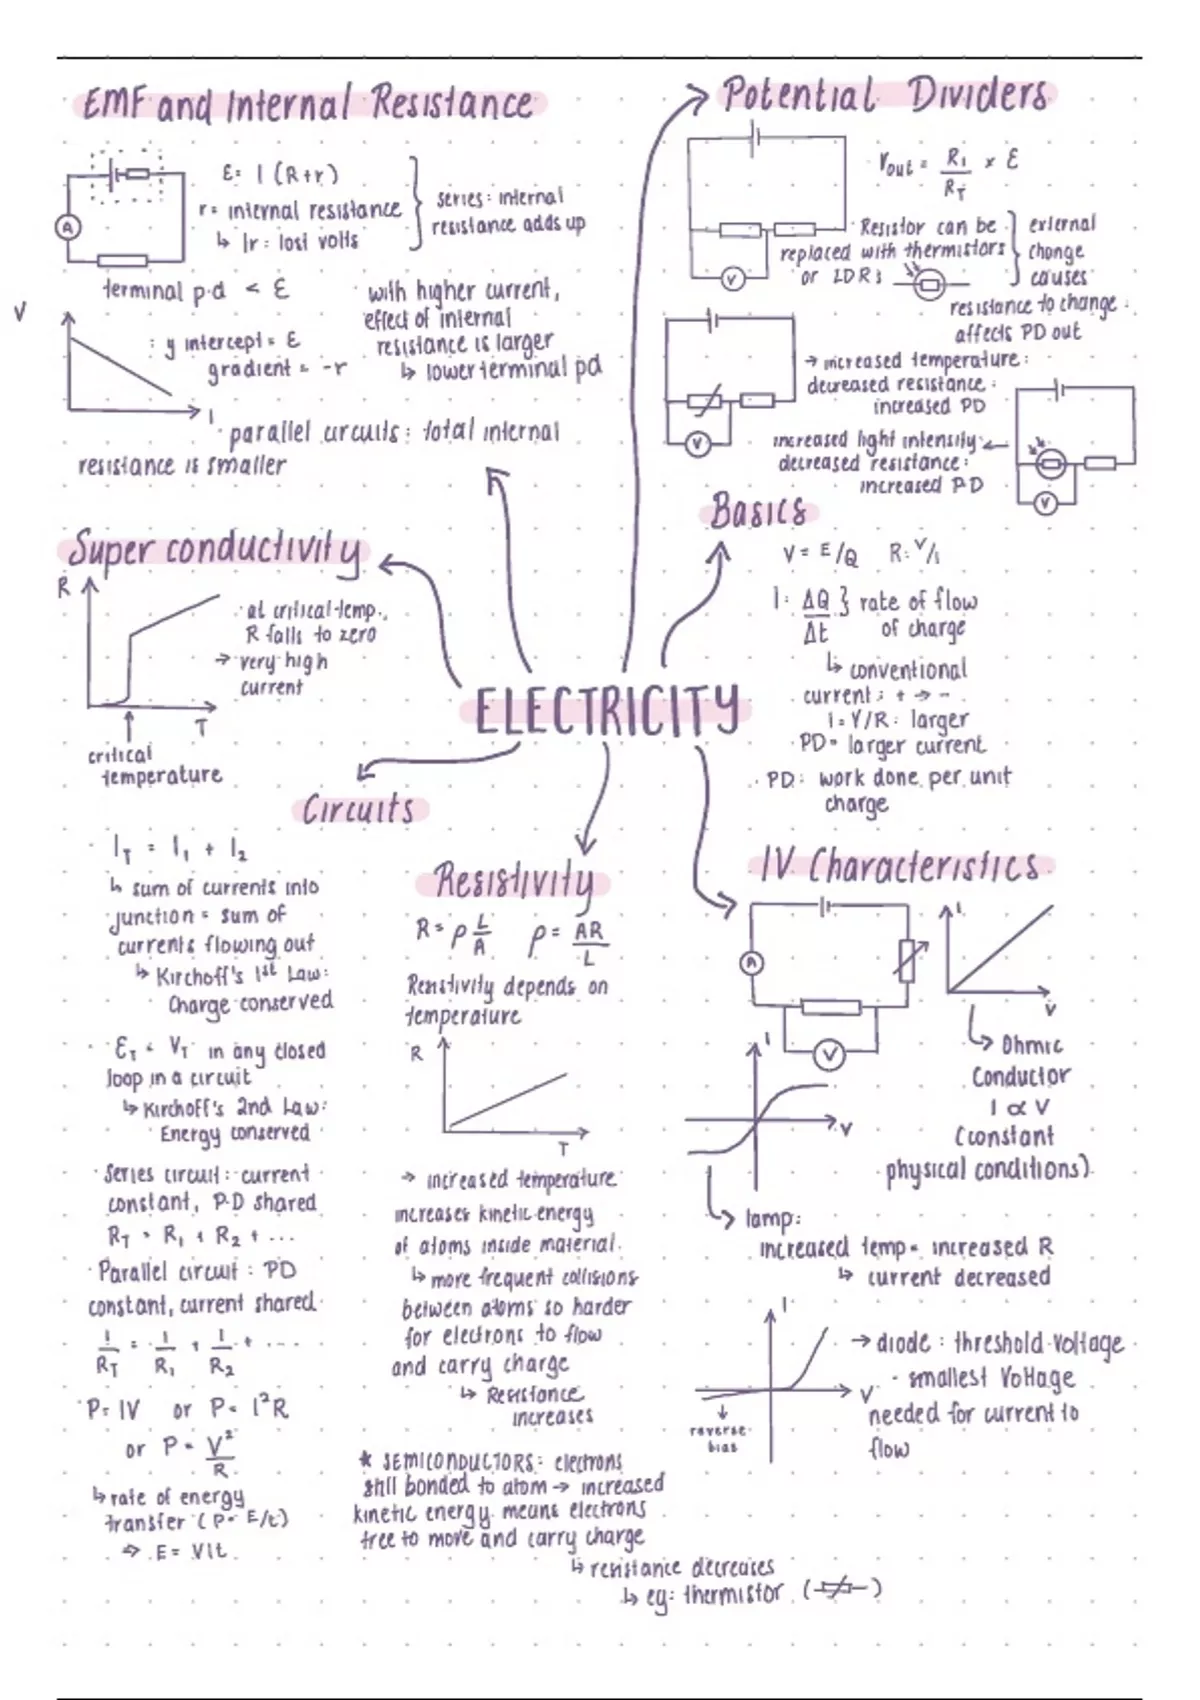 EMF and Internal Resistance
A
ε = I (R+r)
r = internal resistance
↳ Ir = lost volts
series: internal
resistance adds up
terminal p.d < ε
V
I
: y intercept = ε
gradient = -r
· with higher current,
effect of internal
resistance is larger
↳ lower terminal pd
· parallel circuits: total internal
resistance is smaller
Potential Dividers
V
Vout = R1/RT × ε
· Resistor can be
replaced with thermistors
or LDRs
external
change
causes
resistance to change:
affects PD out
V
→ increased temperature:
decreased resistance:
increased PD
increased light intensity ←
decreased resistance:
increased PD
V
Super conductivity
R
T
critical
temperature
· at critical temp.,
R falls to zero
→ very high
current
Basics
V = E/Q R = V/I
I = ΔQ/Δt } rate of flow
of charge
↳ conventional
current: + → -
I = V/R: larger
PD = larger current
· PD: work done per unit
charge
ELECTRICITY
Circuits
· IT = I1 + I2
↳ sum of currents into
junction = sum of
currents flowing out
↳ Kirchoff's 1st Law:
Charge conserved
· εT = VT in any closed
loop in a circuit
↳ Kirchoff's 2nd Law:
Energy conserved
· Series circuit: current
constant, P.D shared
RT = R1 + R2 + ...
· Parallel circuit: PD
constant, current shared
1/RT = 1/R1 + 1/R2 + ....
· P = IV or P = I²R
or P = V²/R
↳ rate of energy
transfer (P = E/t)
⇒ E = VIt
Resistivity
R = ρ L/A ρ = AR/L
Resistivity depends on
temperature
R
T
→ increased temperature
increases kinetic energy
of atoms inside material.
↳ more frequent collisions
between atoms so harder
for electrons to flow
and carry charge
↳ Resistance
increases
* SEMICONDUCTORS: electrons
still bonded to atom → increased
kinetic energy means electrons
free to move and carry charge
↳ resistance decreases
↳ eg: thermistor ( )
IV Characteristics
A
V
I
V
↳ Ohmic
Conductor
I ∝ V
(constant
physical conditions)
I
V
↳ lamp:
increased temp = increased R
↳ current decreased
I
V
reverse
bias
→ diode: threshold voltage
- smallest Voltage
needed for current to
flow